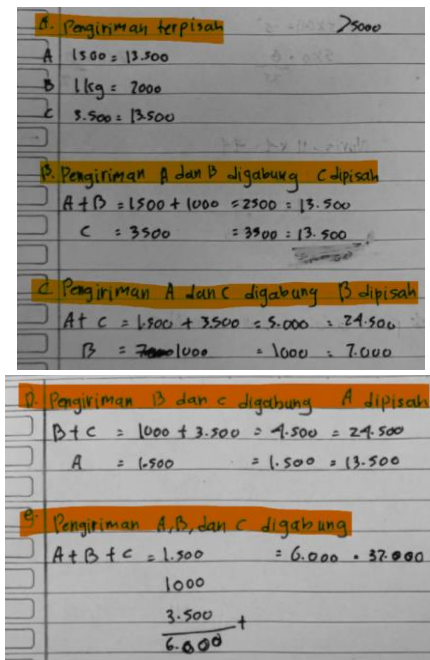 A. Pengiriman terpisah >5000
A 1500 = 13.500
B 1 kg = 7000
C 3.500 = 13.500
B. Pengiriman A dan B digabung C dipisah
A + B = 1500 + 1000 = 2500 = 13.500
C = 3500 = 3500 = 13.500
C Pengiriman A dan C digabung B dipisah
A + C = 1.500 + 3.500 = 5.000 = 24.500
B = 1000 = 1000 = 7.000
D. Pengiriman B dan C digabung A dipisah
B + C = 1000 + 3.500 = 4.500 = 24.500
A = 1.500 = 1.500 = 13.500
e. Pengiriman A, B, dan C digabung
A + B + C = 1.500 = 6.000 = 37.000
1000
3.500 +
6.000